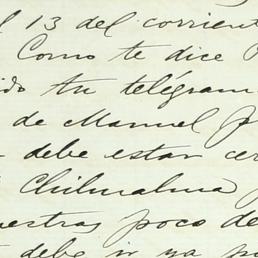 l 13 del corrient
Como te dice
ido tu telégram
de Manuel p
debe estar cer
Chihualma
uestras poco de
debe ir ya